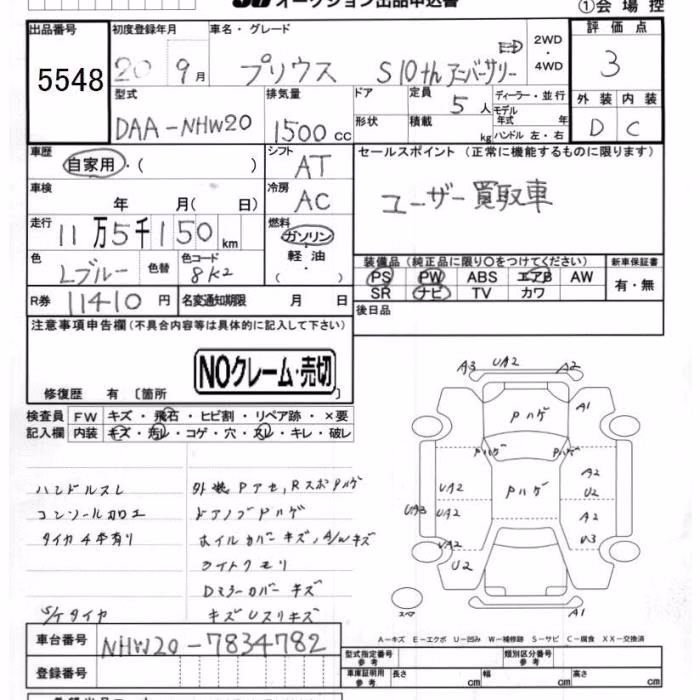 オークション出品申込書
①会場控
出品番号 初度登録年月 車名・グレード 評価点
5548 20 9月 プリウス S10th アニバーサリー ED 2WD・4WD 3
型式 排気量 ドア 定員 ディーラー・並行 外装 内装
DAA-NHW20 1500cc 5人 モデル年式 年 D C
形状 積載 kg ハンドル 左・右
車歴 シフト セールスポイント (正常に機能するものに限ります)
自家用・( ) AT
車検 冷房 ユーザー買取車
年 月( 日) AC
走行 燃料
11万5千150km ガソリン
色 色替 色コード 軽油 装備品 (純正品に限り○をつけてください) 新車保証書
Lブルー 8K2 ( ) PS PW ABS エアB AW 有・無
R券 11410円 名変通知期限 月 日 SR ナビ TV カワ
後日品
注意事項申告欄(不具合内容等は具体的に記入して下さい)
NOクレーム・売切
修復歴 有 〔箇所
検査員 FW キズ・飛石・ヒビ割・リペア跡・×要
記入欄 内装 キズ・汚レ・コゲ・穴・スレ・キレ・破レ
A3 UA2 A2
Pハゲ A1
Pハゲ Pハゲ
ハンドルスレ 外装Pアセ,RスポPハゲ
UA2 Pハゲ A2
U2
コンソール加工 ドアノブPハゲ
UA3 UA2 A2
タイヤ4本有り ホイルカバーキズ,A/Wキズ
UA2 U3
ライトクモリ
U2 A1
Dミラーカバーキズ
S/Tタイヤ キズUスリキズ
A-キズ E-エクボ U-凹み W-補修跡 S-サビ C-腐食 XX-交換済
車台番号 NHW20-7834782
型式指定番号 参考 類別区分番号 参考
登録番号 車庫証明用 参考 長さ cm 幅 cm 高さ cm